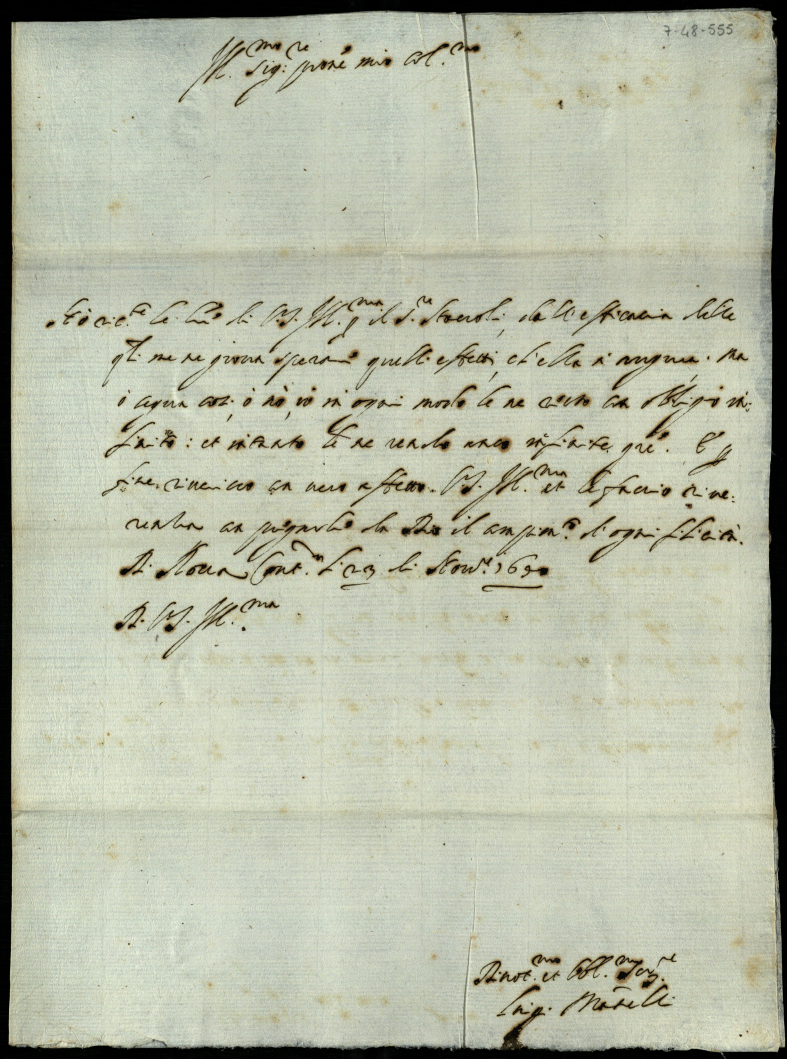 7-48-555
Ill.mo Sig.re prone mio col.mo
Hò ric.te le di V.S. Ill.ma p il S.re dell'efficacia delle
q.li me ne giova sperare quelli effetti, ch'ella si augura. Ma
ò segua così, ò nò, io in ogni modo le ne resto con obligo in:
finito: et intanto le ne rendo anco infinite gre. E p
fine riverisco con vero affetto V.S. Ill.ma et le faccio rive:
renza con pregarle da Dio il di ogni felicità.
Di Rocca Cont.da li 23 di Nov.e
Di V.S. Ill.ma
Divot.mo et Obl.mo Ser.re
Luigi